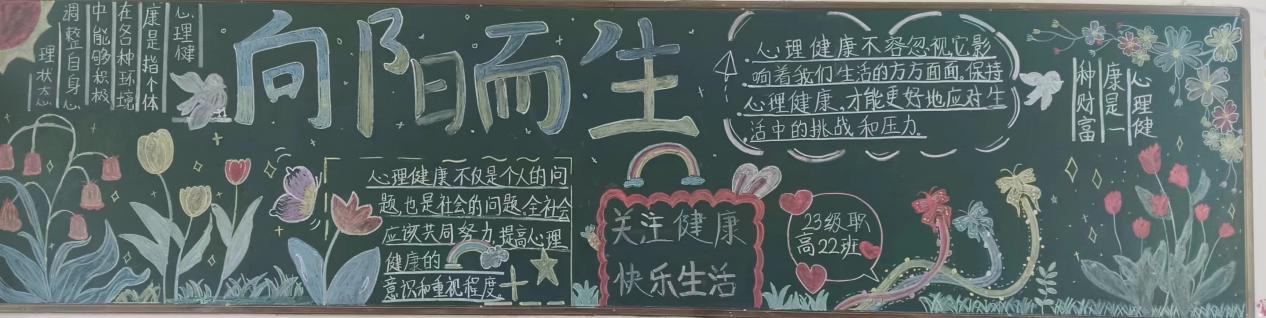 心理健
康是指个体
在各种环境
中能够积极
调整自身心
理状态
向阳而生
心理健康不容忽视它影
响着我们生活的方方面面。保持
心理健康、才能更好地应对生
活中的挑战和压力.
心理健
康是一
种财富
心理健康不仅是个人的问
题,也是社会的问题,全社会
应该共同努力,提高心理
健康的
意识和重视程度。
关注健康
快乐生活
23级职
高22班